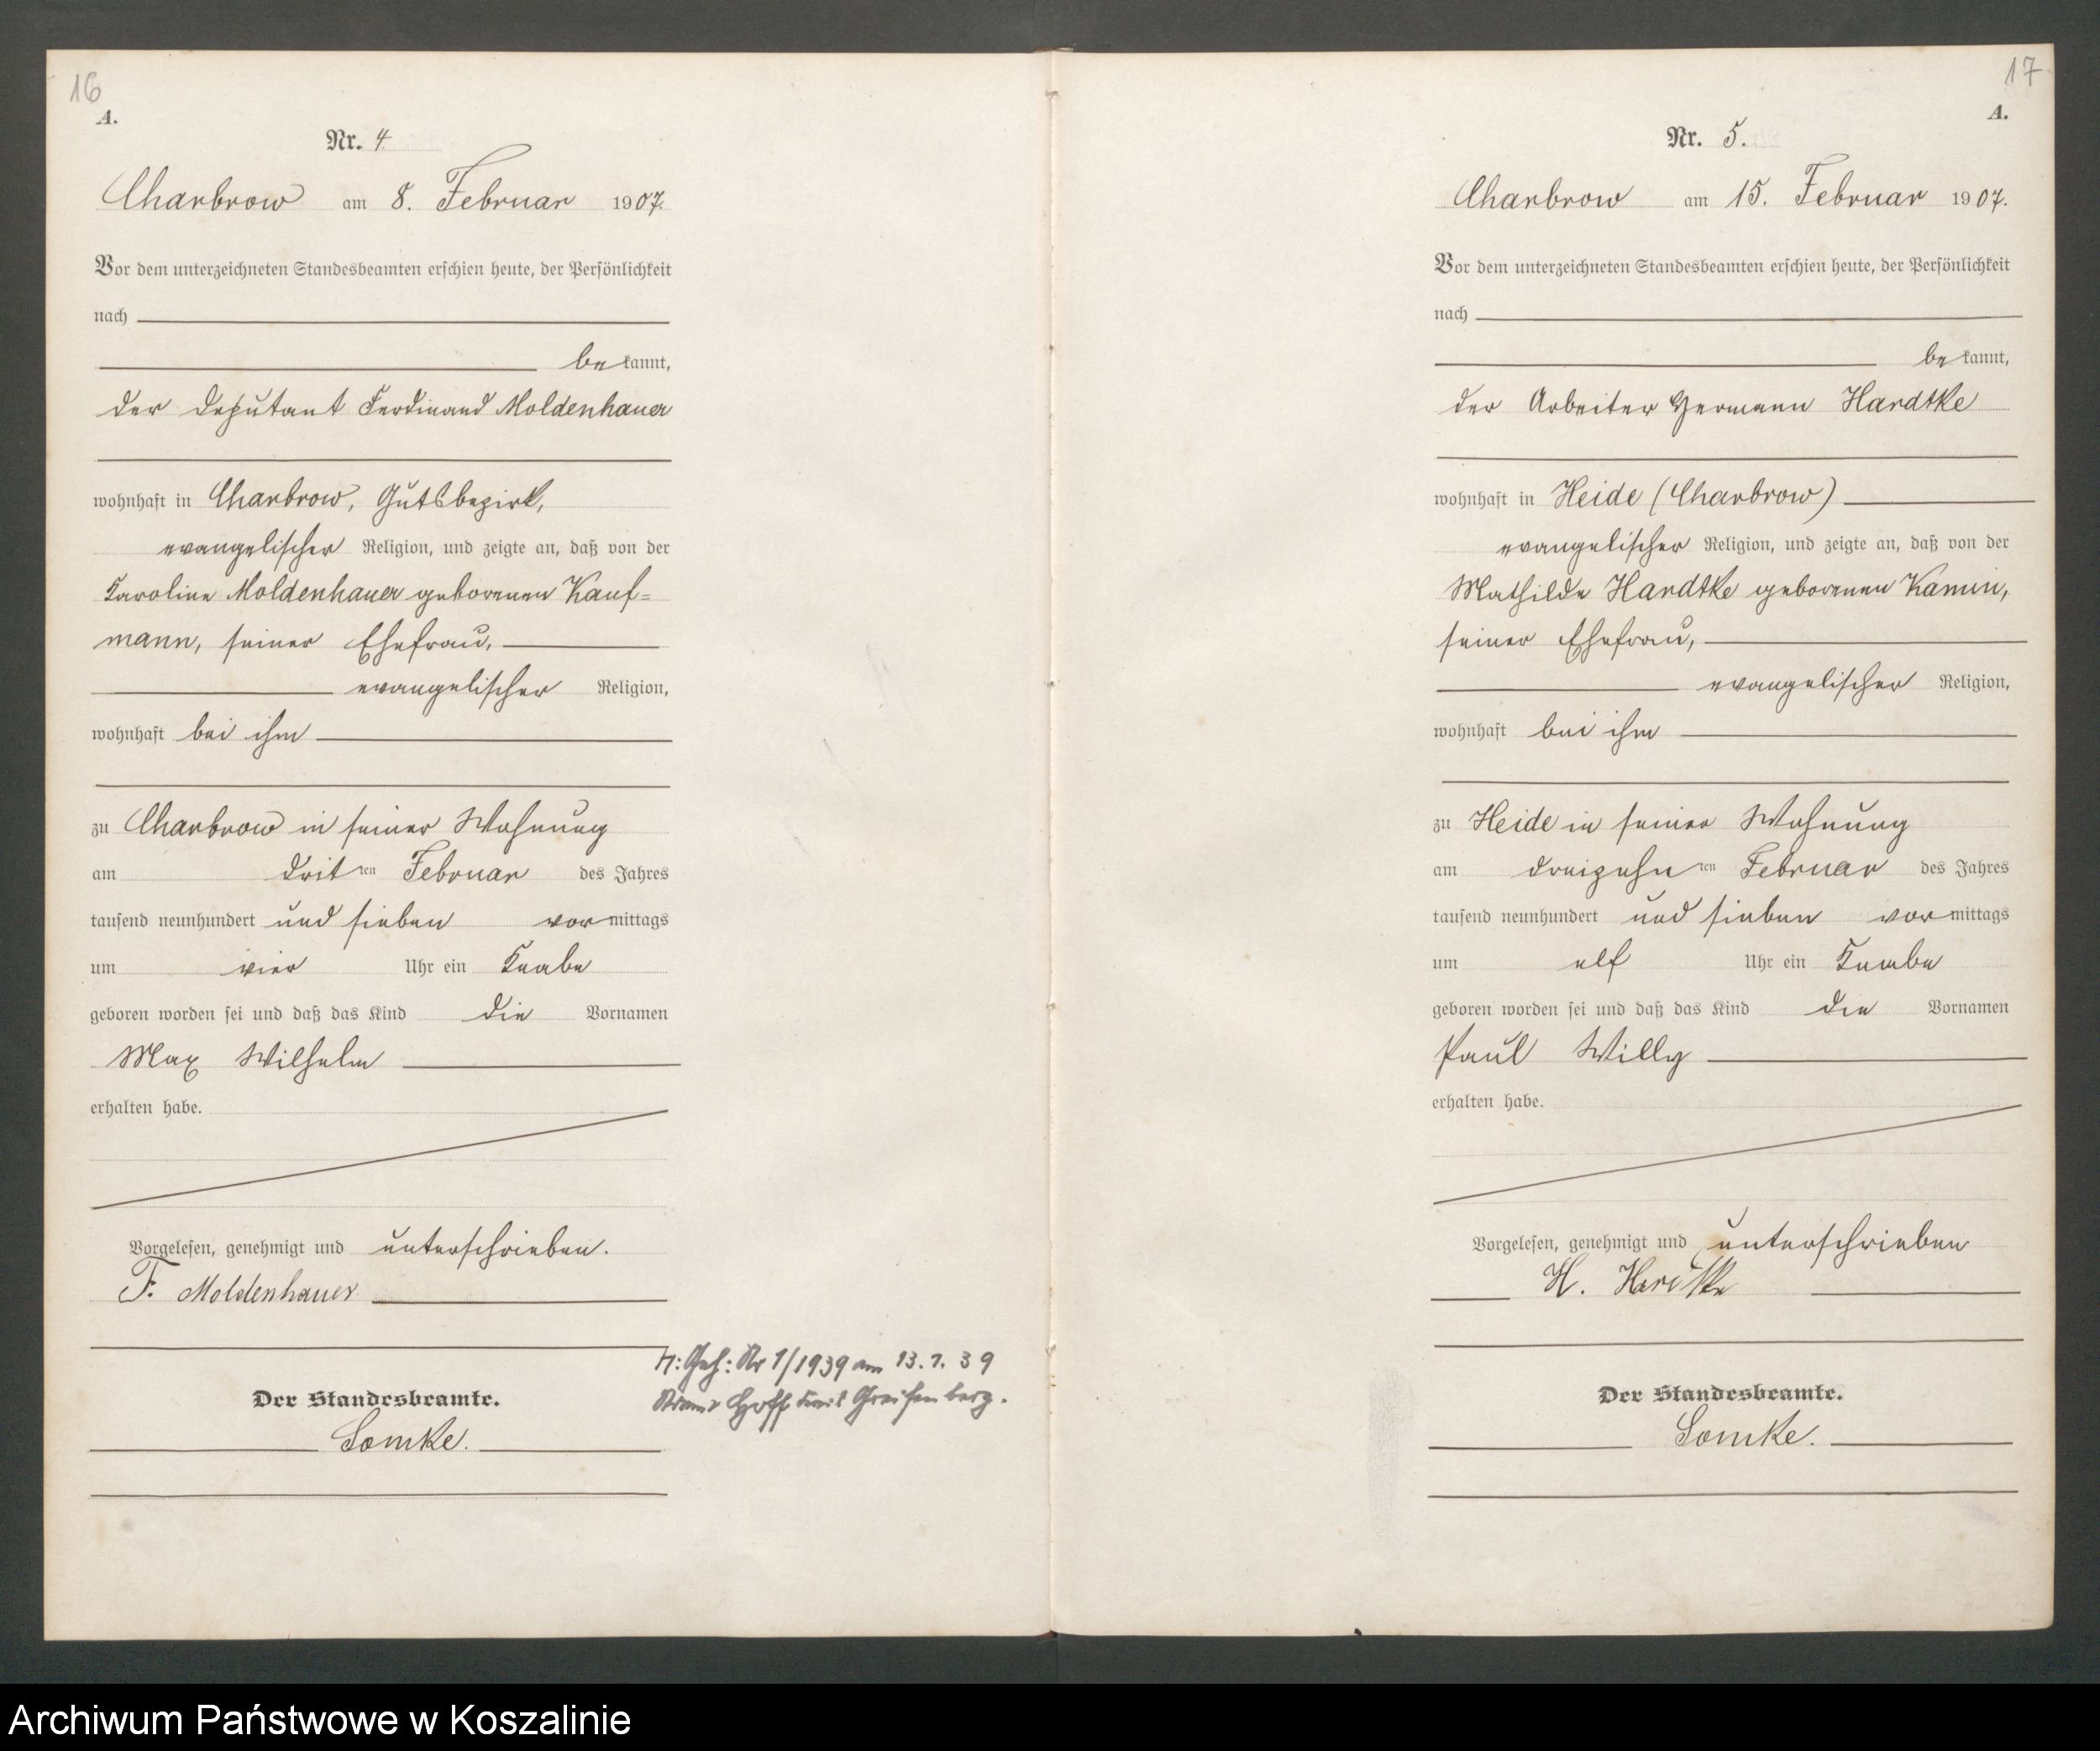 16
A.
Nr. 4
Charbrow am 8. Februar 1907.
Vor dem unterzeichneten Standesbeamten erschien heute, der Persönlichkeit
nach
bekannt,
der Deputant Ferdinand Moldenhauer
wohnhaft in Charbrow, Gutsbezirk,
evangelischer Religion, und zeigte an, daß von der
Karoline Moldenhauer geborenen Kauf=
mann, seiner Ehefrau,
evangelischer Religion,
wohnhaft bei ihm
zu Charbrow in seiner Wohnung
am dritten Februar des Jahres
tausend neunhundert und sieben vormittags
um vier Uhr ein Knabe
geboren worden sei und daß das Kind die Vornamen
Max Wilhelm
erhalten habe.
Vorgelesen, genehmigt und unterschrieben.
F. Moldenhauer
Der Standesbeamte.
Lomke.
H: Geh: Nr 1/1939 am 13.1.39
Hoff Kreis Greifenberg.
17
A.
Nr. 5.
Charbrow am 15. Februar 1907.
Vor dem unterzeichneten Standesbeamten erschien heute, der Persönlichkeit
nach
bekannt,
der Arbeiter Hermann Hardtke
wohnhaft in Heide (Charbrow)
evangelischer Religion, und zeigte an, daß von der
Mathilde Hardtke geborenen Kamin,
seiner Ehefrau,
evangelischer Religion,
wohnhaft bei ihm
zu Heide in seiner Wohnung
am dreizehnten Februar des Jahres
tausend neunhundert und sieben vormittags
um elf Uhr ein Knabe
geboren worden sei und daß das Kind die Vornamen
Paul Willy
erhalten habe.
Vorgelesen, genehmigt und unterschrieben
H. Hardtke
Der Standesbeamte.
Lomke.
Archiwum Państwowe w Koszalinie